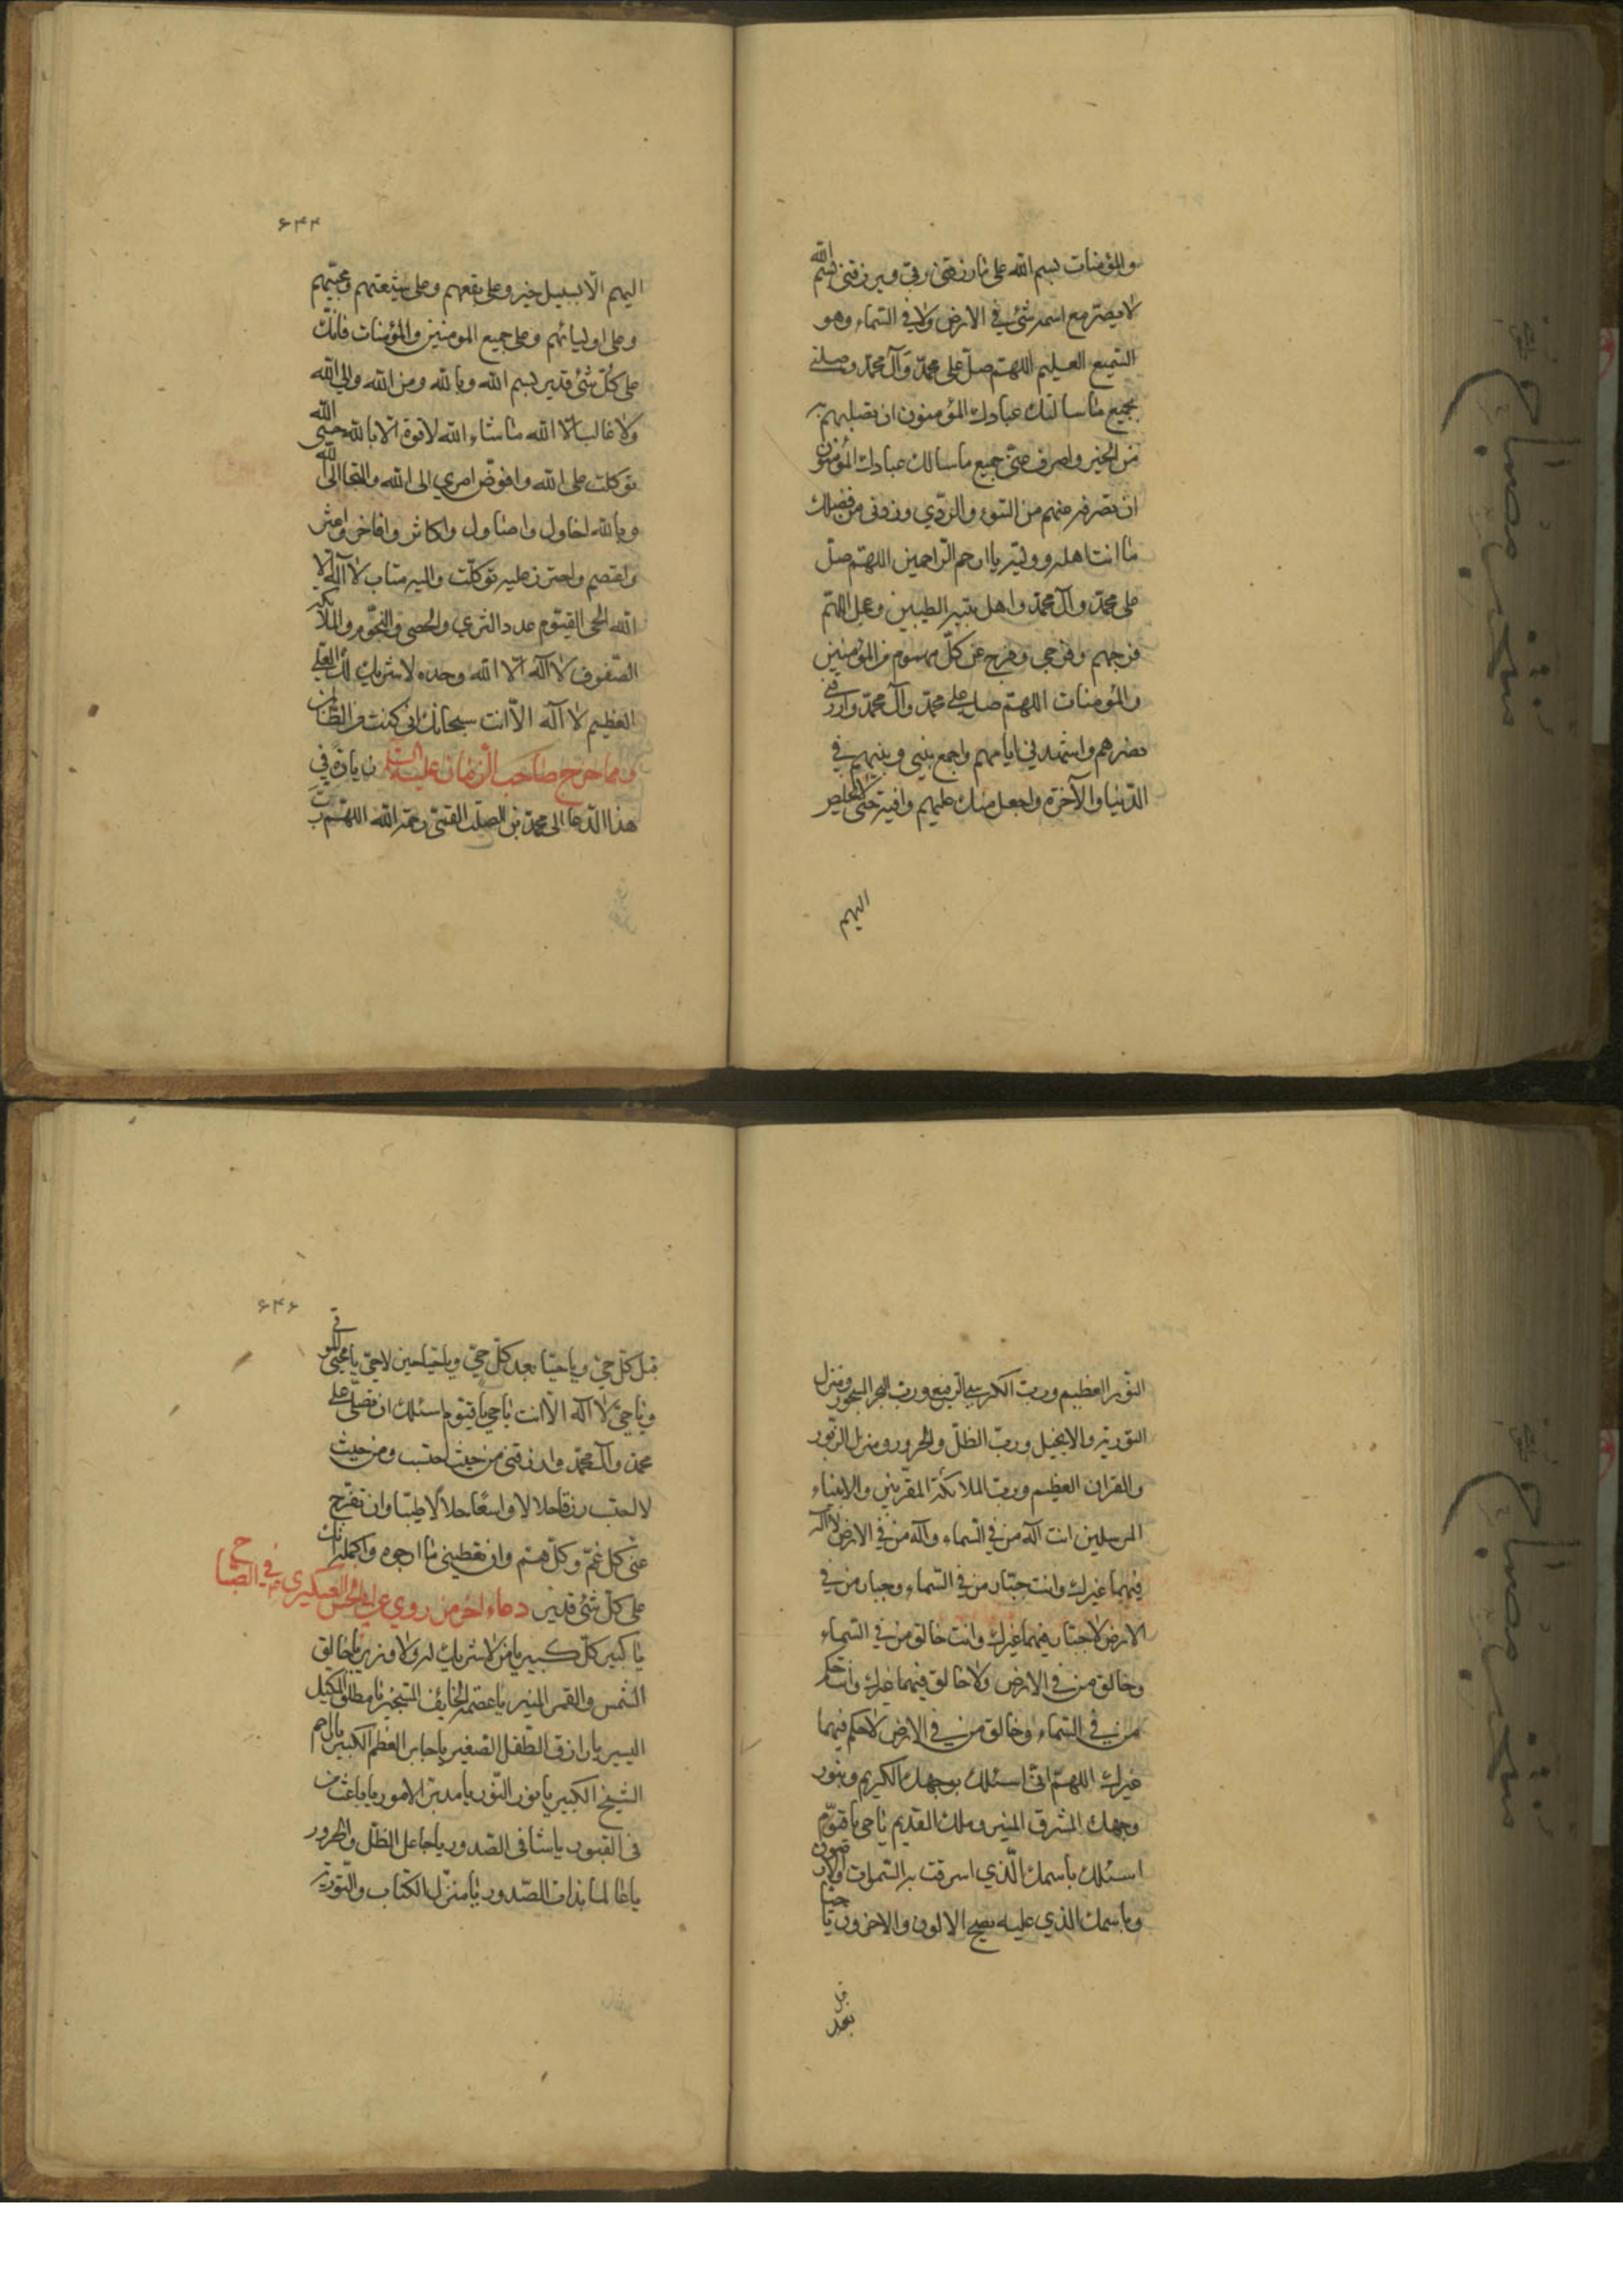 والمؤمنات بسم الله على ما رزقتي ربي ويرزقني بسم الله
لا يضر مع اسمه شئ في الارض ولا في السماء وهو
السميع العليم اللهم صل على محمد وآل محمد وصلني
بجميع ما سالك عبادك المؤمنون ان تصلهم به
من الخير واصرف عني جميع ما سالك عبادك المؤمنون
ان تصرفه عنهم من السوء والردي وزدني من فضلك
ما انت اهله ووليه يا ارحم الراحمين اللهم صل
على محمد وآل محمد واهل بيته الطيبين وعجل اللهم
فرجهم وفرجي وفرج عن كل مهموم من المؤمنين
والمؤمنات اللهم صل على محمد وآل محمد وارزقني
نصرهم واشهدني ايامهم واجمع بيني وبينهم في
الدنيا والآخرة واجعل منك عليهم واقية حتى لا يخلص
اليهم
۶۴۴
اليهم الا بسبيل خير وعلى معهم وعلى شيعتهم ومحبيهم
وعلى اوليائهم وعلى جميع المومنين والمؤمنات فانك
على كل شئ قدير بسم الله وبالله ومن الله والى الله
ولا غالب الا الله ما شاء الله لا قوة الا بالله حسبي الله
توكلت على الله وافوض امري الى الله والتجا الى الله
وبالله احاول واصاول واكاثر وافاخر واعتز
واعتصم واحترز عليه توكلت واليه متاب لا آله الا
الله الحى القيوم عدد الثري والحصي والنجوم والملائكه
الصفوف لا آله الا الله وحده لا شريك له العلي
العظيم لا آله الا انت سبحانك اني كنت من الظالمين
ومما خرج صاحب الزمان عليه السلم زيادة في
هذا الدعا الى محمد بن الصلت القمي رحمه الله اللهم رب
النور العظيم ورب الكرسي الرفيع ورب البحر المسجور ومنزل
التورية والانجيل ورب الظل والحرور ومنزل الزبور
والقران العظيم ورب الملائكة المقربين والانبياء
المرسلين انت آله من في السماء وآله من في الارض لا آله
فيهما غيرك وانت جبار من في السماء وجبار من في
الارض لا جبار فيهما غيرك وانت خالق من في السماء
وخالق من في الارض ولا خالق فيهما غيرك وانت حكم
من في السماء وخالق من في الارض لا حكم فيهما
غيرك اللهم اني اسئلك بوجهك الكريم وبنور
وجهك المشرق المنير وملك القديم يا حى يا قيوم
اسئلك باسمك الذي اشرقت به السموات والارضون
وباسمك الذي عليه يصلح الاولون والاخرون يا حيا
قبل
بعد
۶۴۶
قبل كل حي ويا حيا بعد كل حي ويا حيا حين لاحي يا محيي الموتى
ويا حي لا اله الا انت يا حي يا قيوم اسئلك ان تصلي على
محمد وآل محمد وارزقني من حيث احتسب ومن حيث
لا احتسب رزقا حلالا واسعا حلالا طيبا وان تفرج
عني كل غم وكل هم وان تعطيني ما ارجوه وآمله انك
على كل شئ قدير دعاء اخر من روي عن ابي الحسن العسكري ع في الصباح
يا كبير كل كبير يا من لا شريك له ولا وزير يا خالق
الشمس والقمر المنير يا عصمة الخايف المستجير يا مطلق المكبل
الاسير يا رازق الطفل الصغير يا جابر العظم الكبير يا راحم
الشيخ الكبير يا نور النور يا مدبر الامور يا باعث من
في القبور يا شافي الصدور يا جاعل الظل والحرور
يا عالما بذات الصدور يا منزل الكتاب والتورية